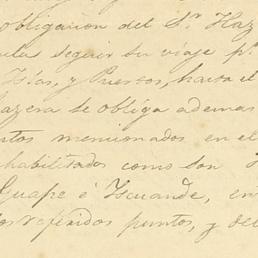 obligacion del Sr Haz
seguir su viaje pr
Islas, y Puertos, hasta el
azera se obliga ademas
ntos mencionados en el
habilitados como son
Guapi é Iscuandé, en
los referidos puntos, y del